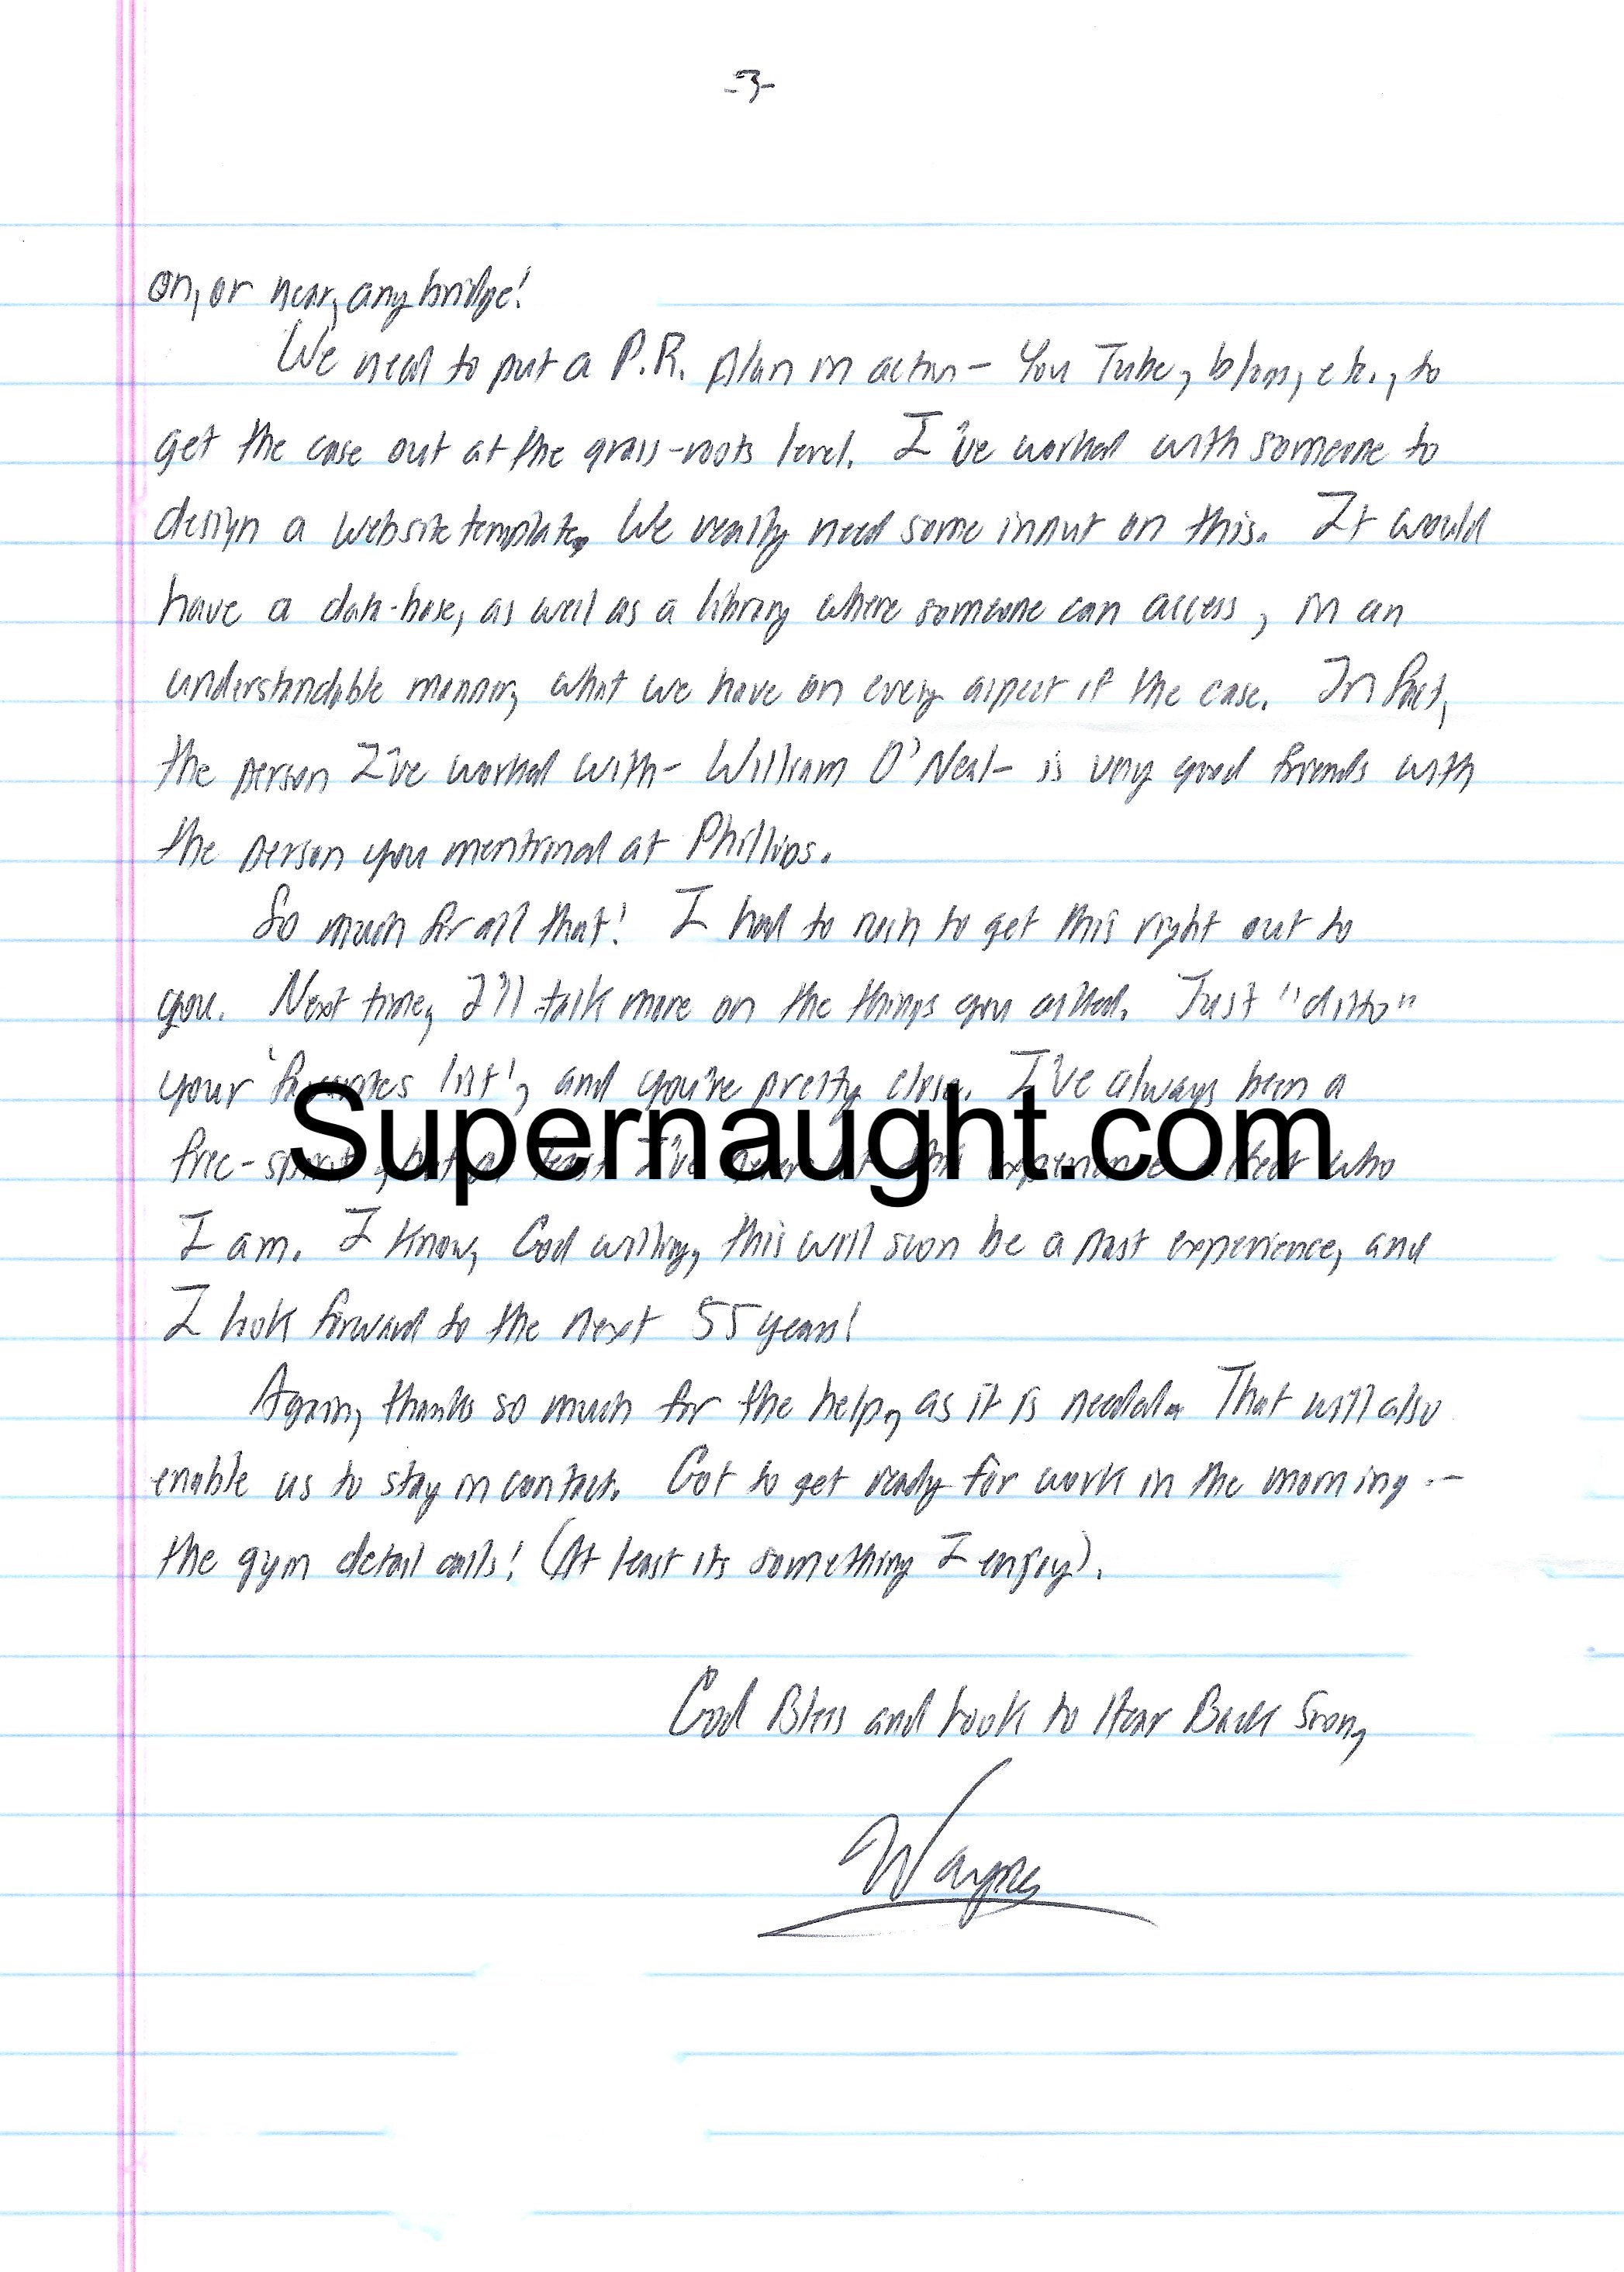 -3-
on, or near, any bridge!
We need to put a P.R. plan in action - You Tube, blogs, etc., to
get the case out at the grass-roots level. I've worked with someone to
design a website template. We really need some input on this. It would
have a data-base, as well as a library where someone can access, in an
understandable manner, what we have on every aspect if the case. In fact,
the person I've worked with - William O'Neal - is very good friends with
the person you mentioned at Phillips.
So much for all that! I had to rush to get this right out to
you. Next time, I'll talk more on the things you asked. Just "ditto"
your 'favorites list', and you're pretty close. I've always been a
Supernaught.com
free-spirit, but at least I've never let this experience who
I am. I know, God willing, this will soon be a past experience, and
I look forward to the next 55 years!
Again, thanks so much for the help, as it is needed. That will also
enable us to stay in contact. Got to get ready for work in the morning --
the gym detail calls! (At least its something I enjoy).
God Bless and Look to Hear Back Soon,
Wayne